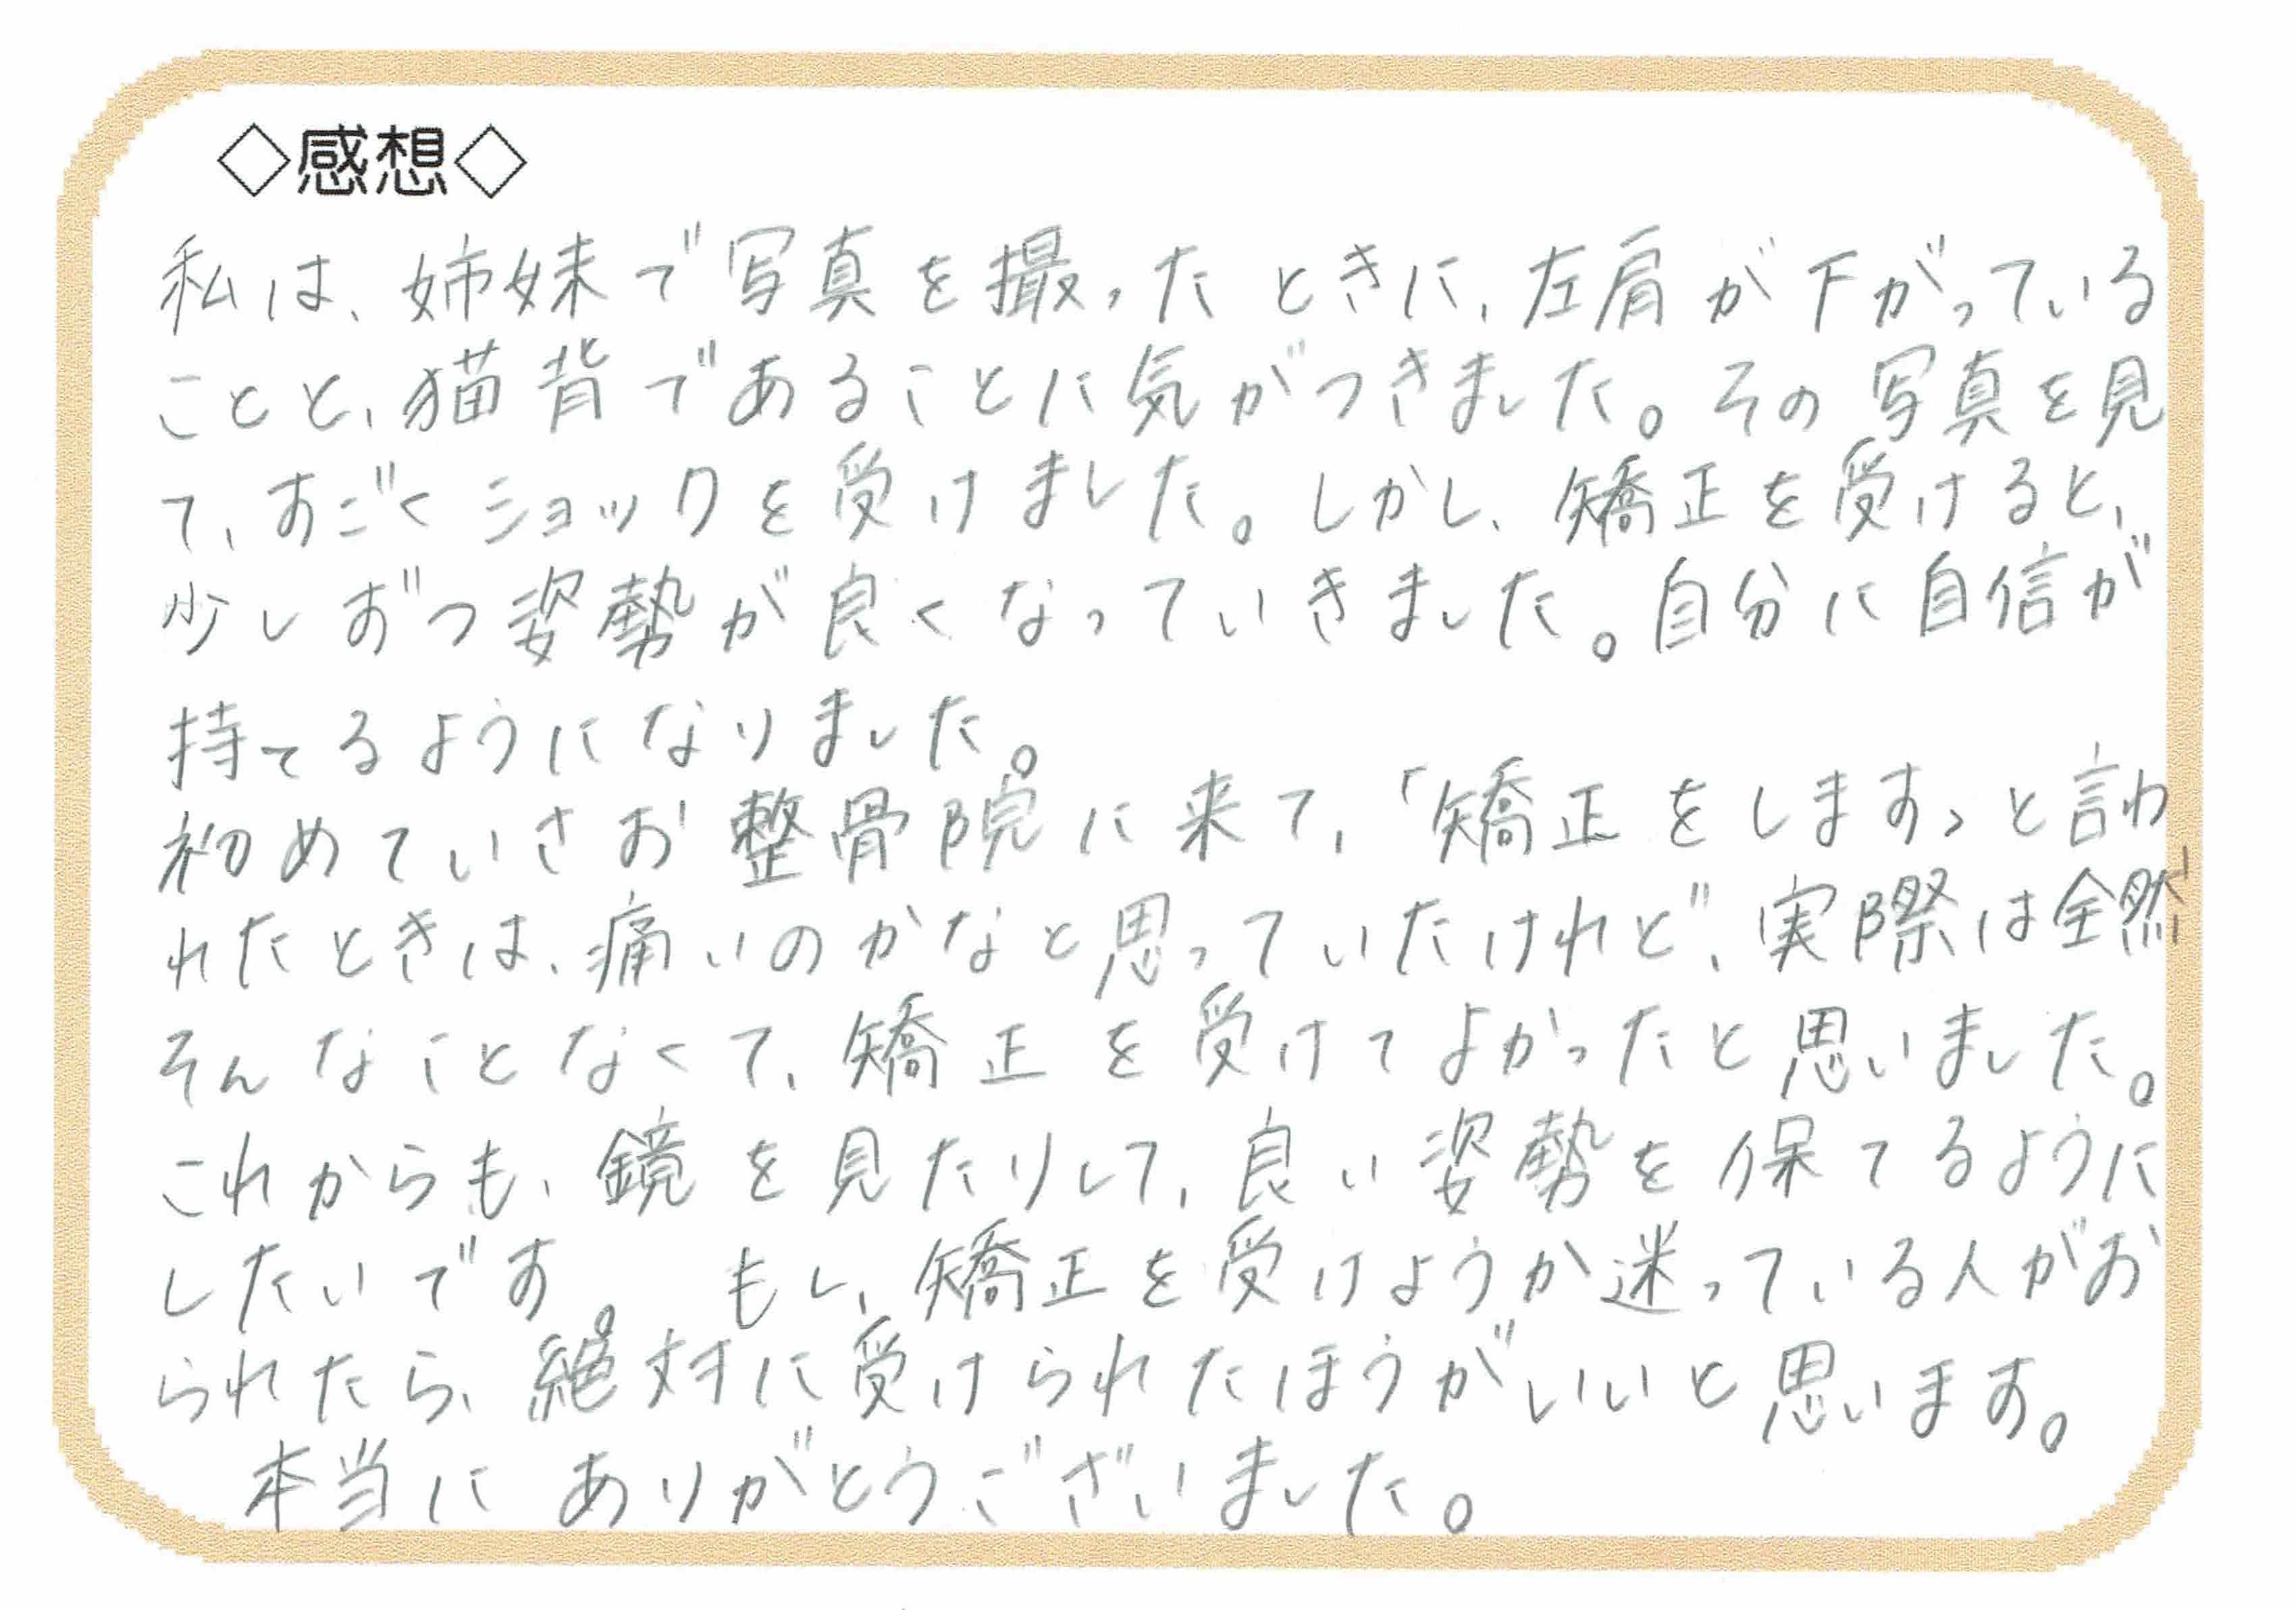 ◇感想◇
私は、姉妹で写真を撮ったときに、左肩が下がっている
ことと、猫背であることに気がつきました。その写真を見
て、すごくショックを受けました。しかし、矯正を受けると、
少しずつ姿勢が良くなっていきました。自分に自信が
持てるようになりました。
初めていさお整骨院に来て、「矯正をします」と言わ
れたときは、痛いのかなと思っていたけれど、実際は全然
そんなことなくて、矯正を受けてよかったと思いました。
これからも、鏡を見たりして、良い姿勢を保てるように
したいです。 もし、矯正を受けようか迷っている人がお
られたら、絶対に受けられたほうがいいと思います。
本当にありがとうございました。